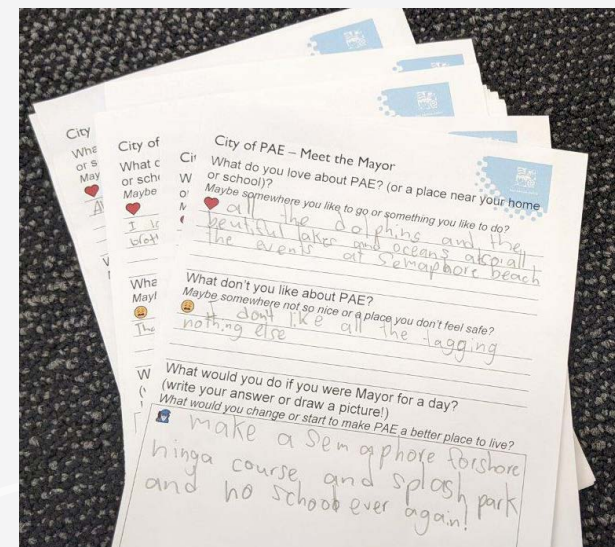 City of PAE – Meet the Mayor
What do you love about PAE? (or a place near your home
or school)?
Maybe somewhere you like to go or something you like to do?
all the dolphins and the
beutiful lakes and oceans also all
the events at Semaphore beach
What don't you like about PAE?
Maybe somewhere not so nice or a place you don't feel safe?
I dont like all the tagging
nothing else
What would you do if you were Mayor for a day?
(write your answer or draw a picture!)
What would you change or start to make PAE a better place to live?
make a Semaphore forshore
hinga course and splash park
and no school ever again!
City
or s
May
City of
What c
or sch
Maybe
Wha
Mayl
The